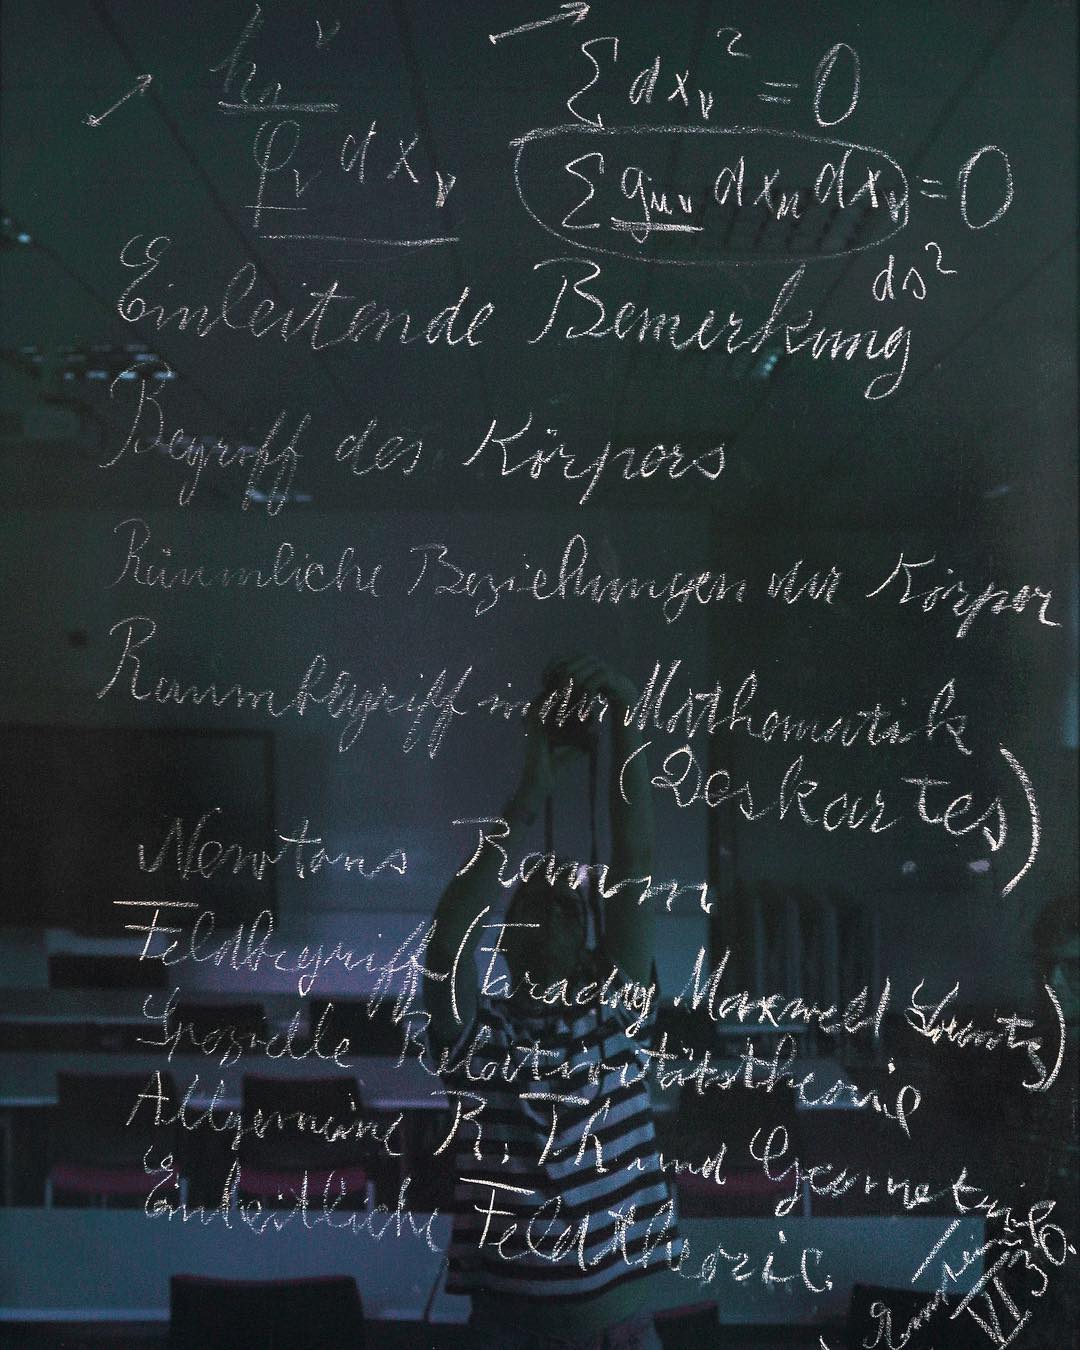 hₛ ν
φν dxν
Σ dxν² = 0
Σ gμν dxμ dxν = 0
ds²
Einleitende Bemerkung
Begriff des Körpers
Räumliche Beziehungen der Körper
Raumbegriff in der Mathematik
(Deskartes)
Newtons Raum
Feldbegriff (Faraday Maxwell Lorentz)
Spezielle Relativitätstheorie
Allgemeine R. Th. und Geometrie
Einheitliche Feldtheorie.
VI 36.